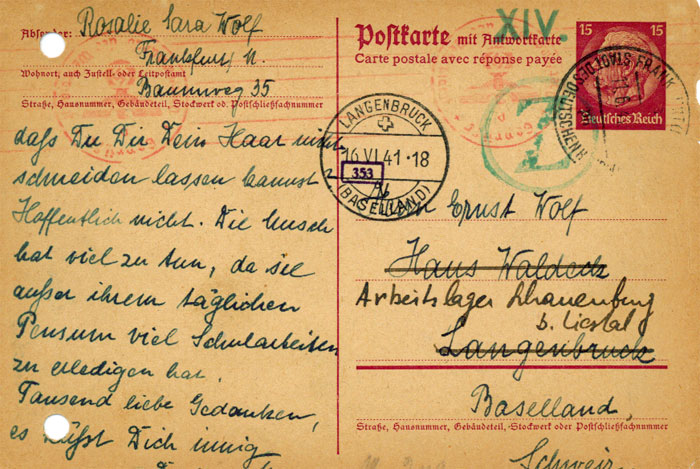 Absender: Rosalie Sara Wolf
Frankfurt M.
Wohnort, auch Zustell- oder Leitpostamt
Baumweg 35
Straße, Hausnummer, Gebäudeteil, Stockwerk od. Postschließfachnummer
daß Du Dir Dein Haar nicht
schneiden lassen kannst?
Hoffentlich nicht. Die
hat viel zu tun, da sie
außer ihrem täglichen
Pensum viel Schularbeiten
zu erledigen hat.
Tausend liebe Gedanken,
es küßt Dich innig
XIV.
Postkarte mit Antwortkarte
Carte postale avec réponse payée
15 15
Deutsches Reich
LANGENBRUCK
16.VI.41·18
353
(BASELLAND)
Ernst Wolf
Haus Waldeck
Arbeitslager Schauenburg
b. Liestal
Langenbruck
Baselland,
Straße, Hausnummer, Gebäudeteil, Stockwerk oder Postschließfachnummer
Schweiz